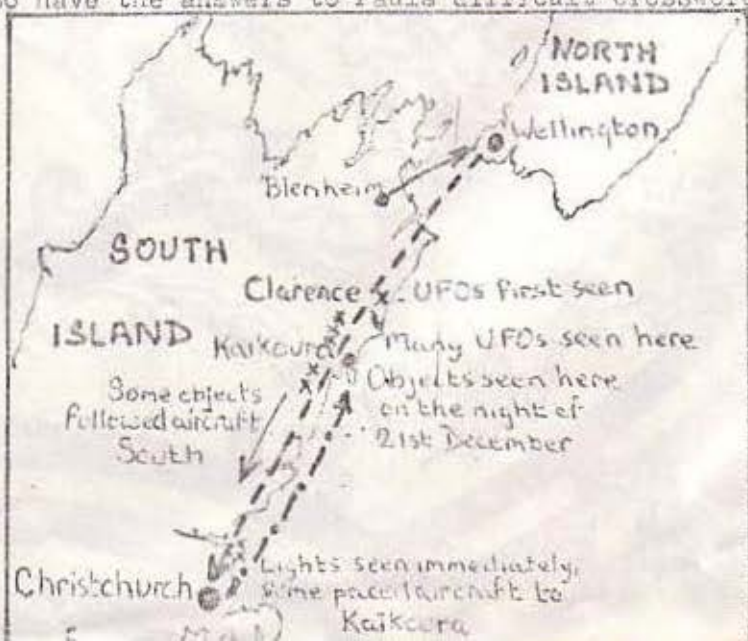 have the answers to
NORTH
ISLAND
Wellington
Blenheim
SOUTH
ISLAND
Clarence
UFOs first seen
Kaikoura
Many UFOs seen here
Objects seen here
on the night of
21st December
Some objects
followed aircraft
South
Christchurch
Lights seen immediately,
some paced aircraft to
Kaikoura